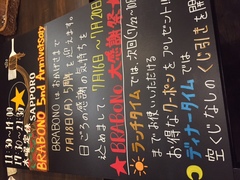 11:30~14:00
SAPPORO
BRABONO 2nd Anniversary
BRABONO はおかげさまで
7月18日(火) 5周年を迎えます。
日ごろの感謝の気持ちを
込めまして、7月10日〜7月20日
★BRABONO大感謝祭★
ランチタイムでは、次回
までお使いいただける
お得なクーポンをプレゼント!!
ディナータイムでは、
空くじなしのくじ引きを開